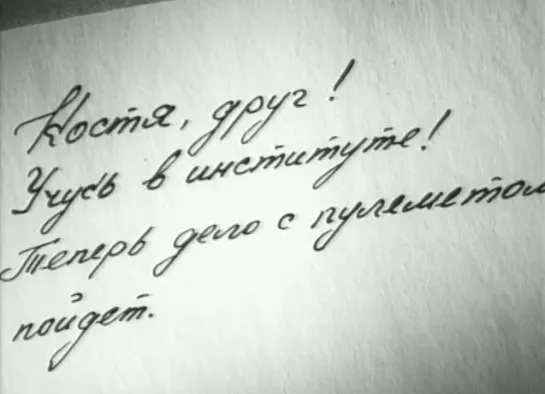 Костя, друг!
Учусь в институте!
Теперь дело с пулеметом
пойдет.